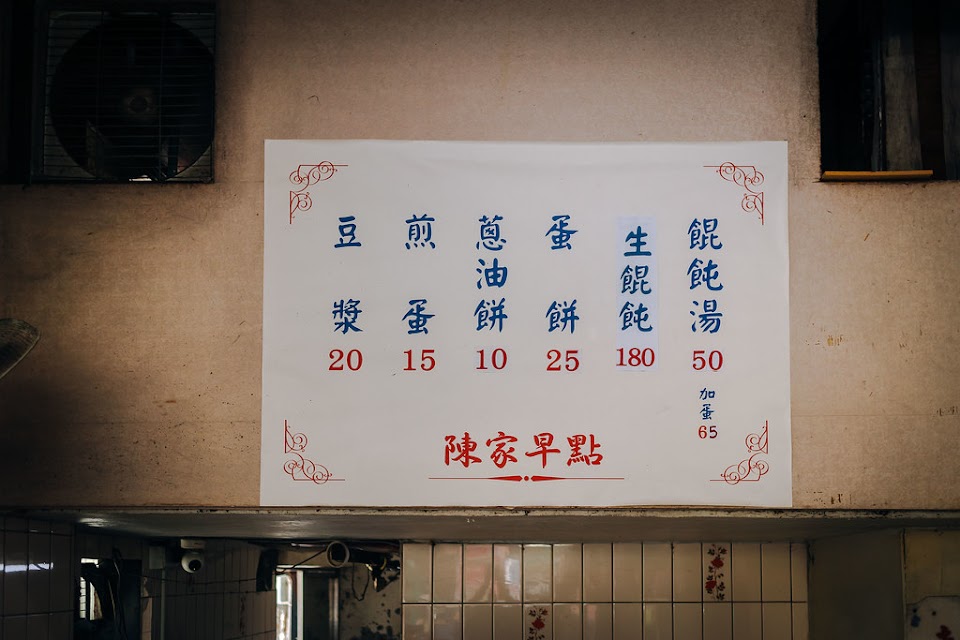 餛飩湯
50
加蛋
65
生餛飩
180
蛋餅
25
蔥油餅
10
煎蛋
15
豆漿
20
陳家早點